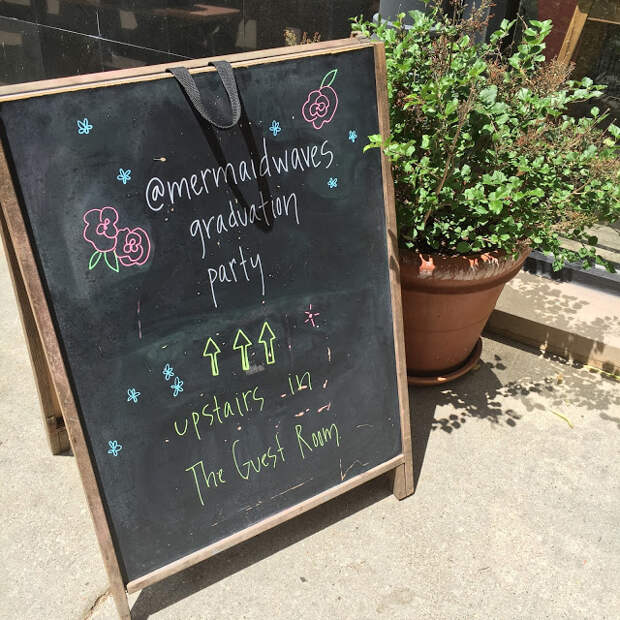 @mermaidwaves
graduation
party
upstairs in
The Guest Room